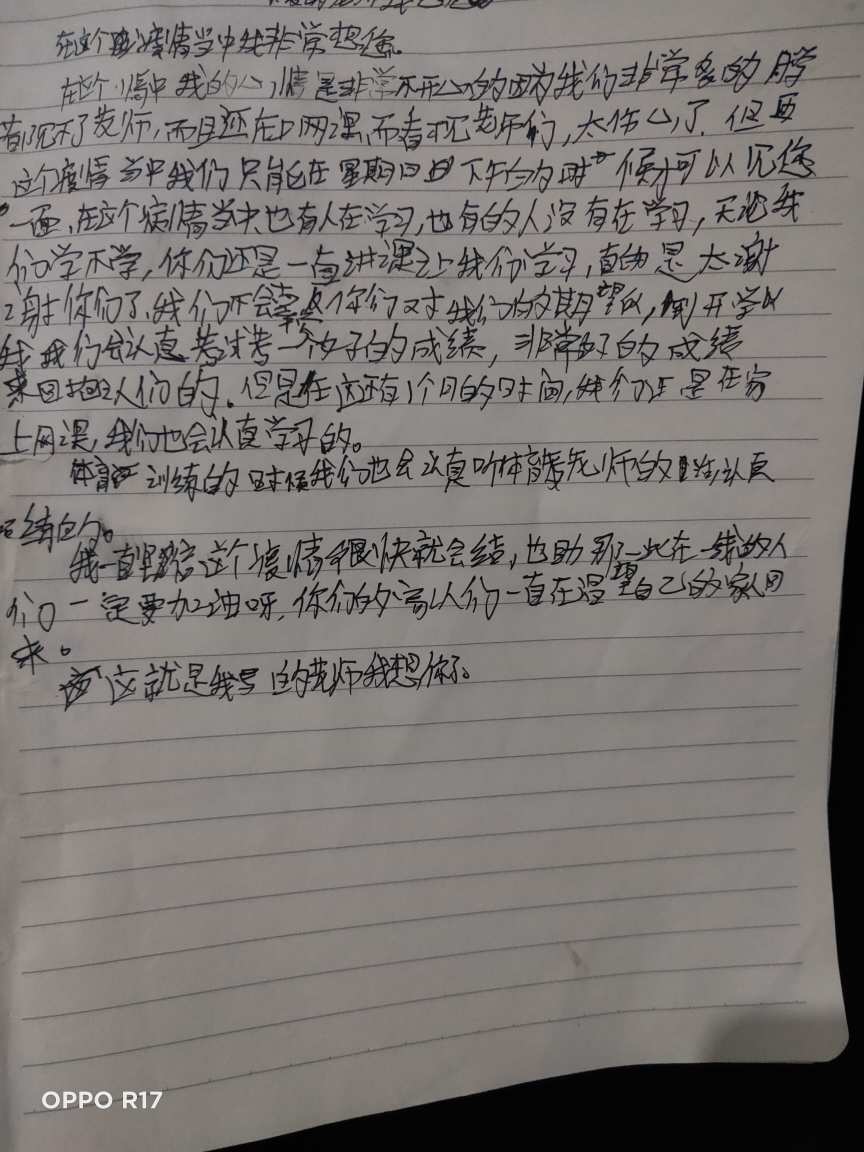 在这个疫情当中我非常想您。
在这个情中我的心情是非常不开心的因为我们非常多的同学
都见不了老师,而且还在上网课,而看不见老师们,太伤心了,但是
这个疫情当中我们只能在星期日下午的时候才可以见您
一面,在这个疫情当中也有人在学习,也有的人没有在学习,无论我
们学不学,你们还是一直讲课让我们学习,真的是太谢
谢你们了,我们不会辜负你们对我们的期望的,到开学以
我们会认真考试考一个好的成绩,非常好的成绩
来回报你们的。但是在这还有1个月的时间,我们还是在家
上网课,我们也会认真学习的。
体育训练的时候我们也会认真听体育老师的话,认真
练的。
我一直坚信这个疫情很快就会结,也助那些在一线的人
们一定要加油呀,你们的家人们一直在渴望自己的家人回
来。
这就是我写的老师我想你了。
OPPO R17